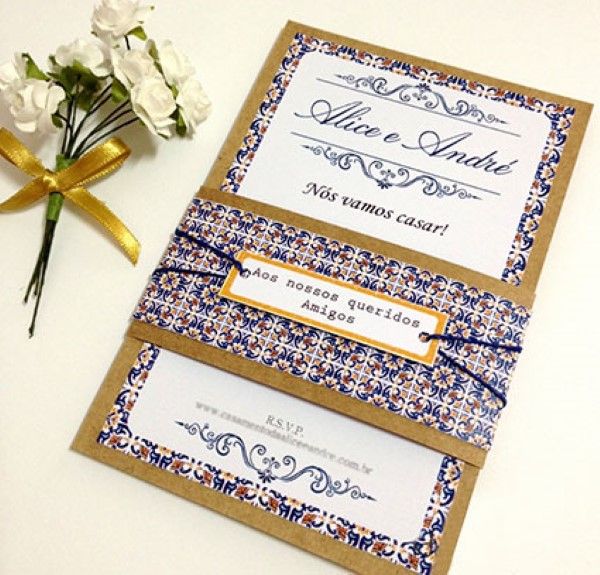 Alice e André
Nós vamos casar!
Aos nossos queridos
Amigos
R.S.V.P.
www.casamentodealiceeandre.com.br